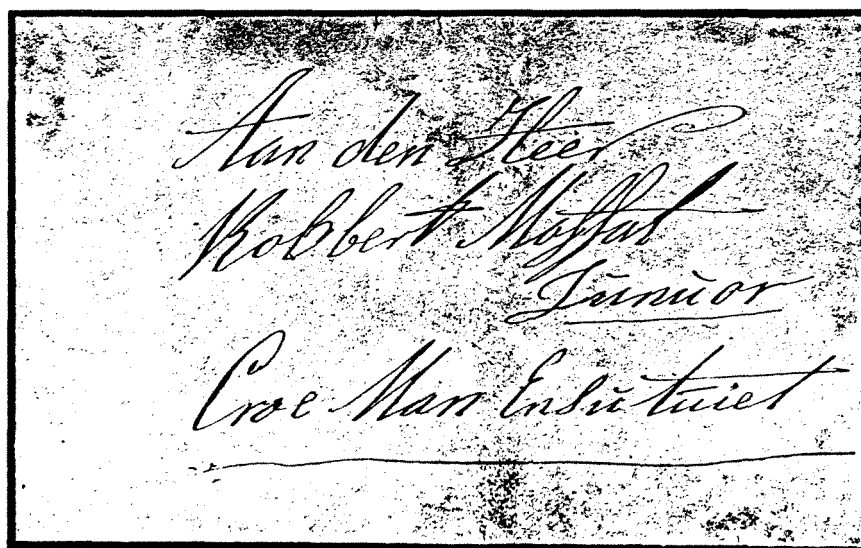 Aan den Heer
Robbert Moffat
Junuor
Croe Man Ensutuiet